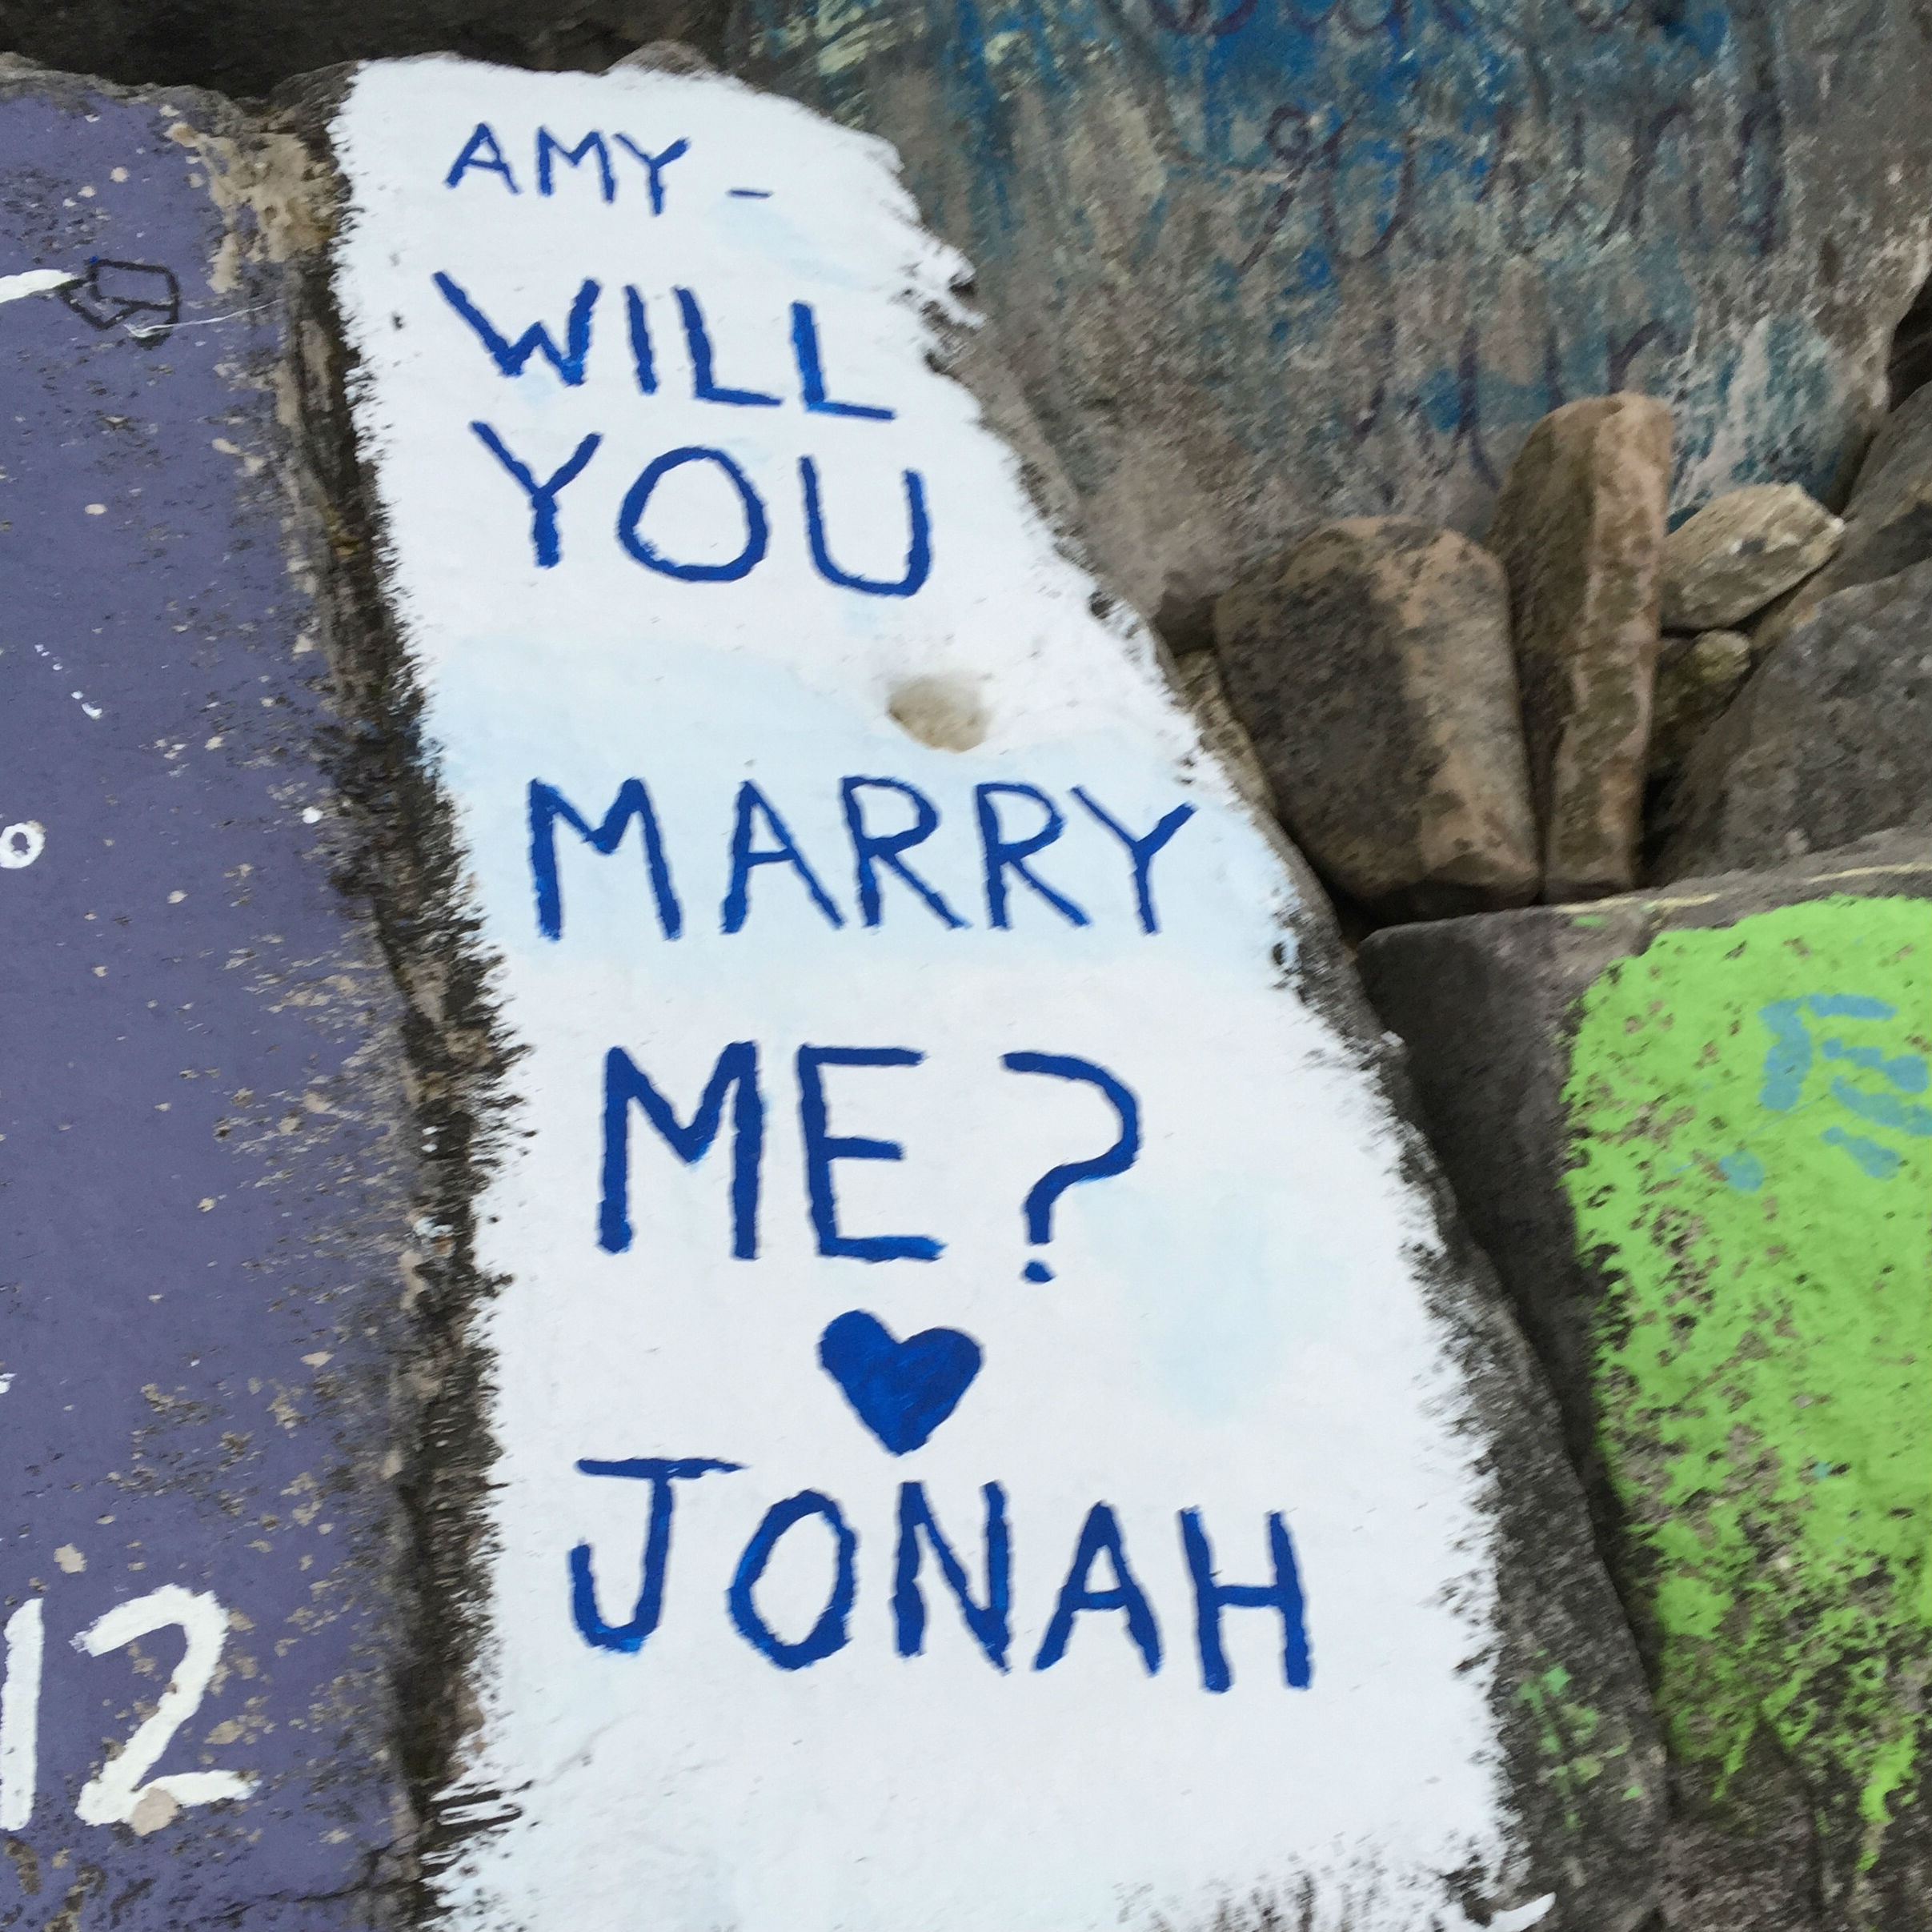 AMY -
WILL
YOU
MARRY
ME?
JONAH
12